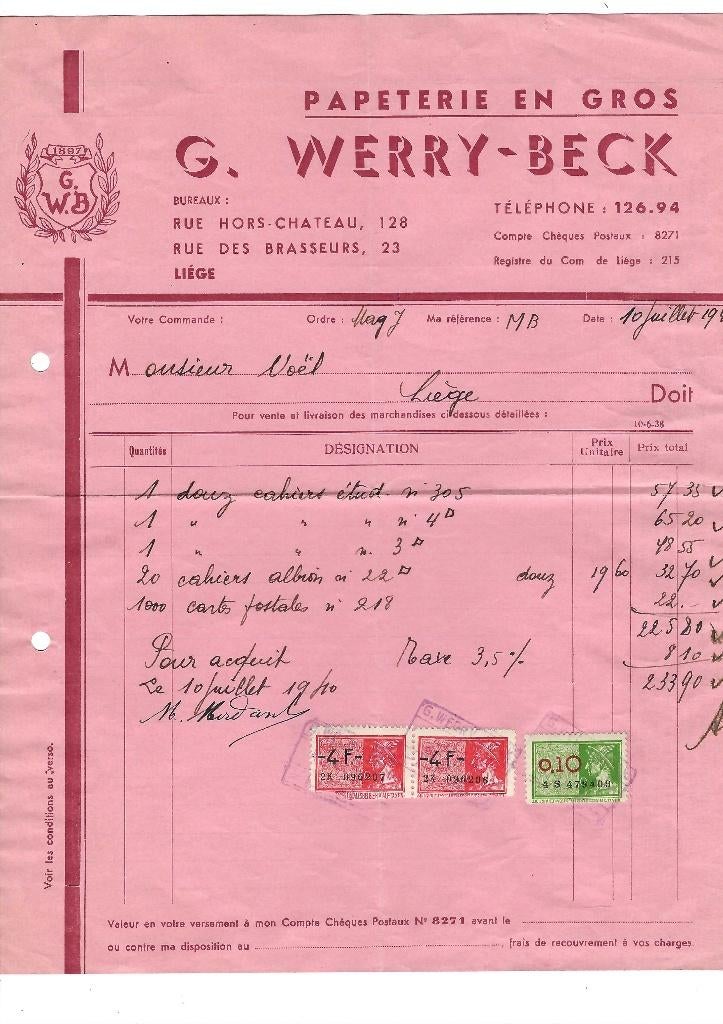 PAPETERIE EN GROS
1897
G.
W.B
G. WERRY-BECK
BUREAUX :
RUE HORS-CHATEAU, 128
RUE DES BRASSEURS, 23
LIÉGE
TÉLÉPHONE : 126.94
Compte Chèques Postaux : 8271
Registre du Com de Liége : 215
Votre Commande : Ordre : Mag J Ma référence : MB Date : 10 Juillet 194
Monsieur Noël
Liège Doit
Pour vente et livraison des marchandises ci dessous détaillées :
10-6-38
Quantités DÉSIGNATION Prix Unitaire Prix total
1 douz cahiers étud. n° 305 57 35
1 " " " n° 4 65 20
1 " " n. 3 48 55
20 cahiers albion n° 22 douz 19 60 32 70
1000 cartes postales n° 218 22.-
225 80
Pour acquit Taxe 3,5 % 8 10
Le 10 Juillet 1940 233 90
-4 F- -4 F- 0,10
2X 096207 2X 096208 4 S 479409
Voir les conditions au verso.
Valeur en votre versement à mon Compte Chèques Postaux N° 8271 avant le
ou contre ma disposition au , frais de recouvrement à vos charges.